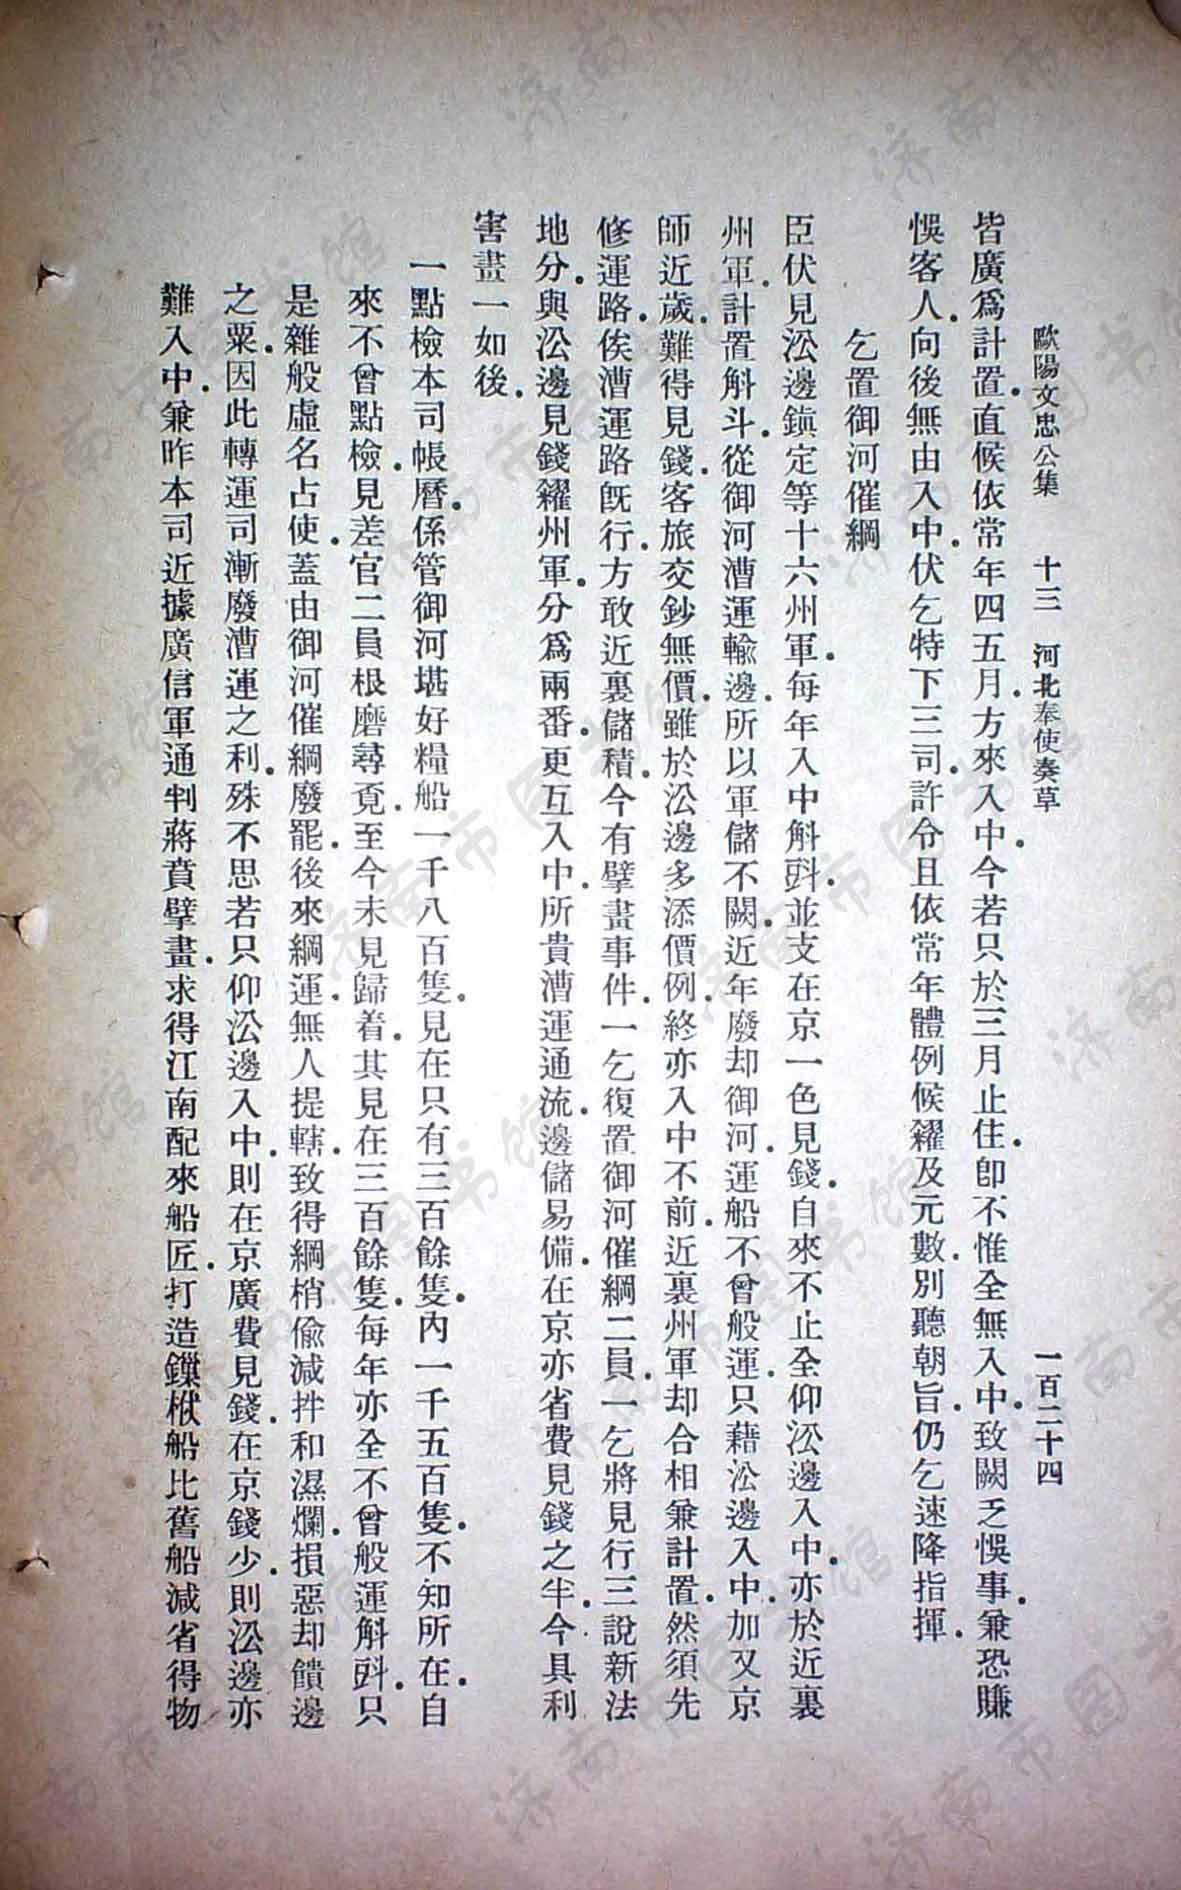 歐陽文忠公集 十三 河北奉使奏草 一百二十四
皆廣爲計置.直候依常年四五月.方來入中.今若只於三月止住.卽不惟全無入中.致闕乏悞事.兼恐賺
悞客人.向後無由入中.伏乞特下三司.許令且依常年體例候糴及元數.別聽朝旨.仍乞速降指揮.
乞置御河催綱
臣伏見沿邊鎭定等十六州軍.每年入中斛㪷.並支在京一色見錢.自來不止全仰沿邊入中.亦於近裏
州軍.計置斛斗.從御河漕運輸邊.所以軍儲不闕.近年廢却御河.運船不曾般運.只藉沿邊入中.加又京
師近歲.難得見錢.客旅交鈔無價.雖於沿邊多添價例.終亦入中不前.近裏州軍却合相兼計置.然須先
修運路.俟漕運路旣行.方敢近裏儲積.今有擘畫事件.一乞復置御河催綱二員.一乞將見行三說新法
地分.與沿邊見錢糴州軍.分爲兩番.更互入中.所貴漕運通流.邊儲易備.在京亦省費見錢之半.今具利
害畫一如後.
一點檢本司帳曆.係管御河堪好糧船一千八百隻.見在只有三百餘隻.內一千五百隻.不知所在.自
來不曾點檢.見差官二員根磨尋覔.至今未見歸着.其見在三百餘隻.每年亦全不曾般運斛㪷.只
是雜般虛名占使.蓋由御河催綱廢罷.後來綱運.無人提轄.致得綱梢偷減拌和濕爛.損惡却饋邊
之粟.因此轉運司漸廢漕運之利.殊不思若只仰沿邊入中.則在京廣費見錢.在京錢少.則沿邊亦
難入中.兼昨本司近據廣信軍通判蔣賁擘畫.求得江南配來船匠.打造鏁栿船.比舊船減省得物